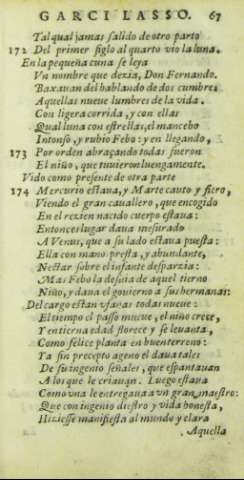 GARCI LASSO. 67
Tal qual jamas salido de otro parto
172 Del primer siglo al quarto vio la luna.
En la pequeña cuna se leya
Vn nombre que dezia, Don Fernando.
Baxauan del hablando de dos cumbres
Aquellas nueue lumbres de la vida.
Con ligera corrida, y con ellas
Qual luna con estrellas, el mancebo
Intonso, y rubio Febo: y en llegando,
173 Por orden abraçando todas fueron
El niño, que tuuieron luengamente.
Vido como presente de otra parte
174 Mercurio estaua, y Marte cauto y fiero,
Viendo el gran cauallero, que encogido
En el rezien nacido cuerpo estaua:
Entonces lugar daua mesurado
A Venus, que a su lado estaua puesta:
Ella con mano presta, y abundante,
Nectar sobre el infante desparzia:
Mas Febo la desuia de aquel tierno
Niño, y daua el gouierno a sus hermanas:
Del cargo estan vfanas todas nueue:
El tiempo el passo mueue, el niño crece,
Y en tierna edad florece y se leuanta,
Como felice planta en buen terreno:
Ya sin precepto ageno el daua tales
De su ingenio señales, que espantauan
A los que le criauan. Luego estaua
Como vna le entregaua a vn gran maestro:
Que con ingenio diestro y vida honesta,
Hiziesse manifiesta al mundo y clara
Aquella